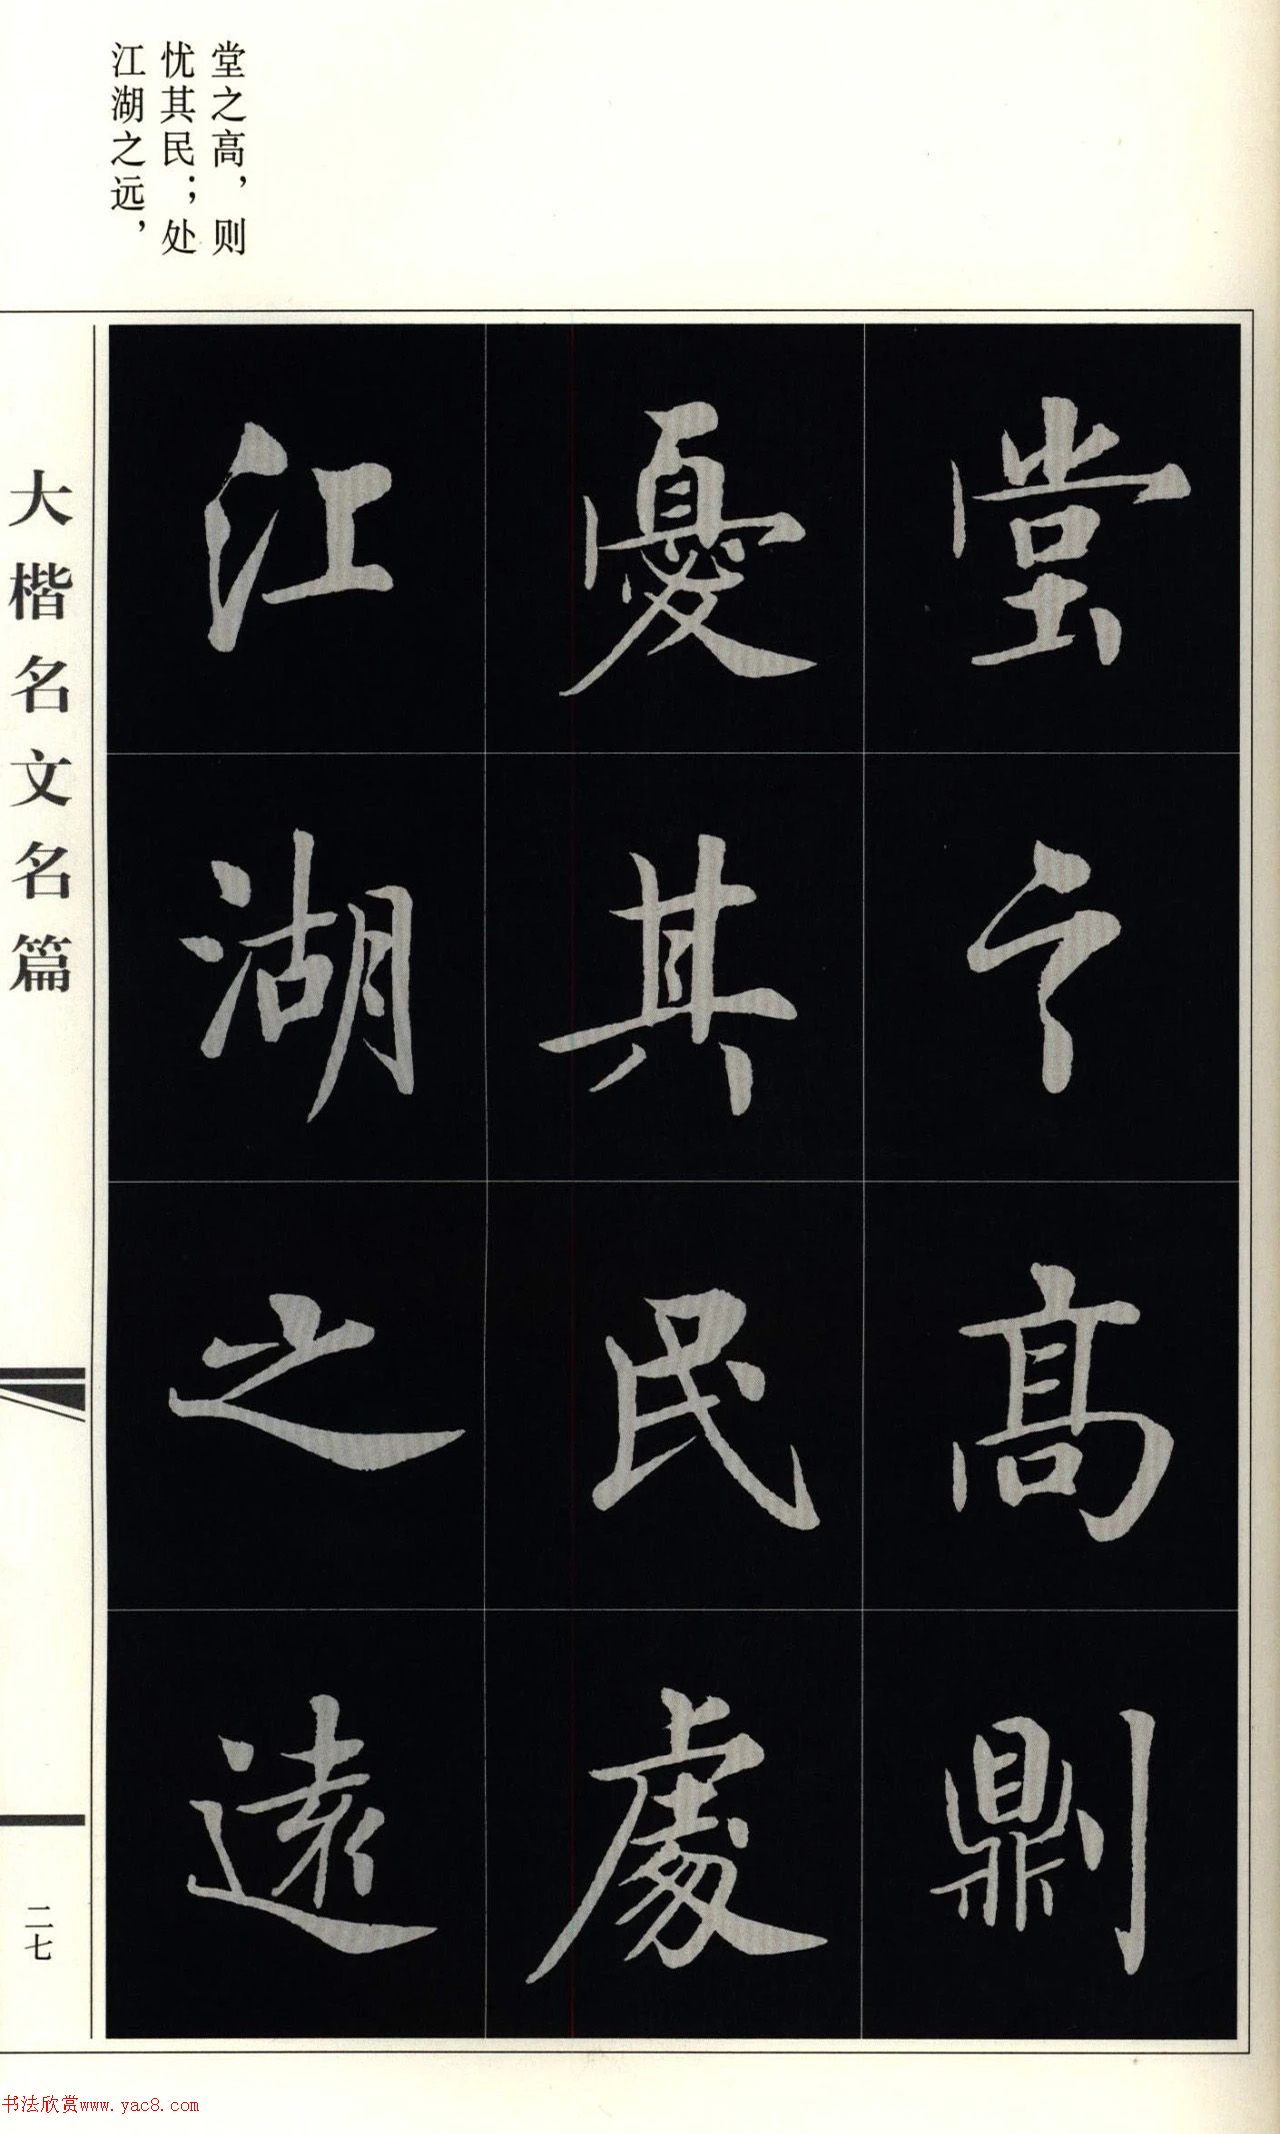 堂之高，则
忧其民；处
江湖之远，
堂之高鼎刂
憂其民處
江湖之遠
大楷名文名篇
二七
书法欣赏www.yac8.com